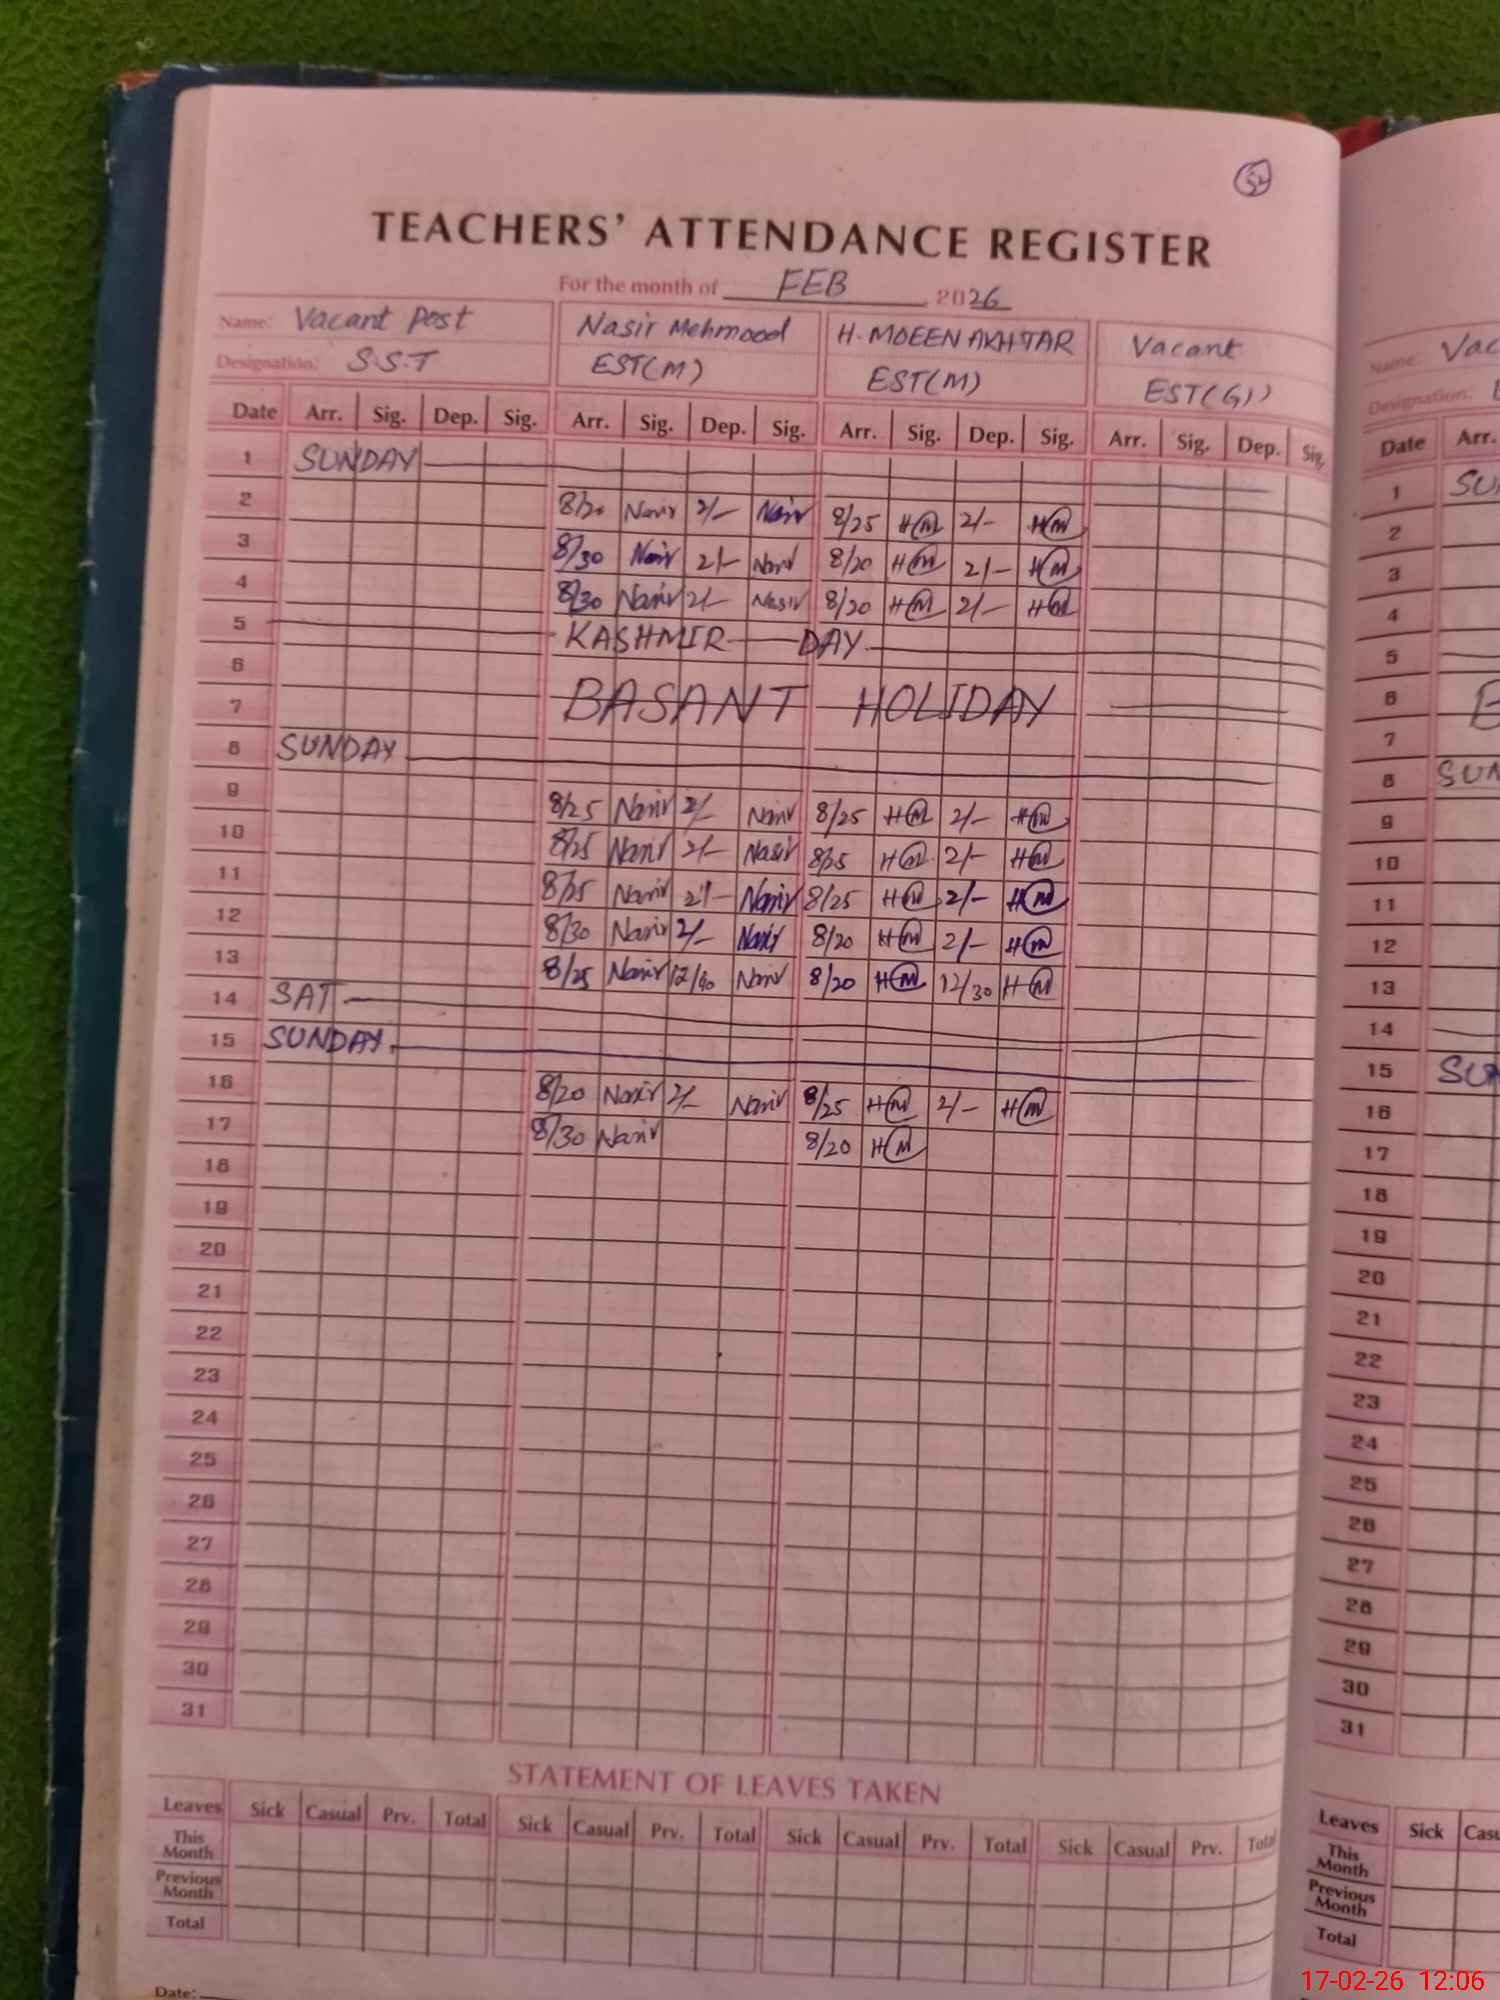 52
TEACHERS' ATTENDANCE REGISTER
For the month of FEB 2026
Name: Vacant Post Nasir Mehmood H. MOEEN AKHTAR Vacant
Designation: S.S.T EST(M) EST(M) EST(G)
Date Arr. Sig. Dep. Sig. Arr. Sig. Dep. Sig. Arr. Sig. Dep. Sig. Arr. Sig. Dep. Sig.
1 SUNDAY
2 8/20 Nasir 2/- Nasir 8/25 HM 2/- HM
3 8/30 Nasir 2/- Nasir 8/20 HM 2/- HM
4 8/30 Nasir 2/- Nasir 8/20 HM 2/- HM
5 KASHMIR DAY
6
7 BASANT HOLIDAY
8 SUNDAY
9 8/25 Nasir 2/- Nasir 8/25 HM 2/- HM
10 8/25 Nasir 2/- Nasir 8/25 HM 2/- HM
11 8/25 Nasir 2/- Nasir 8/25 HM 2/- HM
12 8/30 Nasir 2/- Nasir 8/20 HM 2/- HM
13 8/25 Nasir Nasir 8/20 HM 12/30 HM
14 SAT
15 SUNDAY
16 8/20 Nasir 2/- Nasir 8/25 HM 2/- HM
17 8/30 Nasir 8/20 HM
18
19
20
21
22
23
24
25
26
27
28
29
30
31
STATEMENT OF LEAVES TAKEN
Leaves Sick Casual Prv. Total Sick Casual Prv. Total Sick Casual Prv. Total Sick Casual Prv. Total
This Month
Previous Month
Total
Date:
Name: Vac
Designation:
Date Arr.
1 SU
2
3
4
5
6 B
7
8 SUN
9
10
11
12
13
14
15 SUN
16
17
18
19
20
21
22
23
24
25
26
27
28
29
30
31
Leaves Sick Casu
This Month
Previous Month
Total
17-02-26 12:06